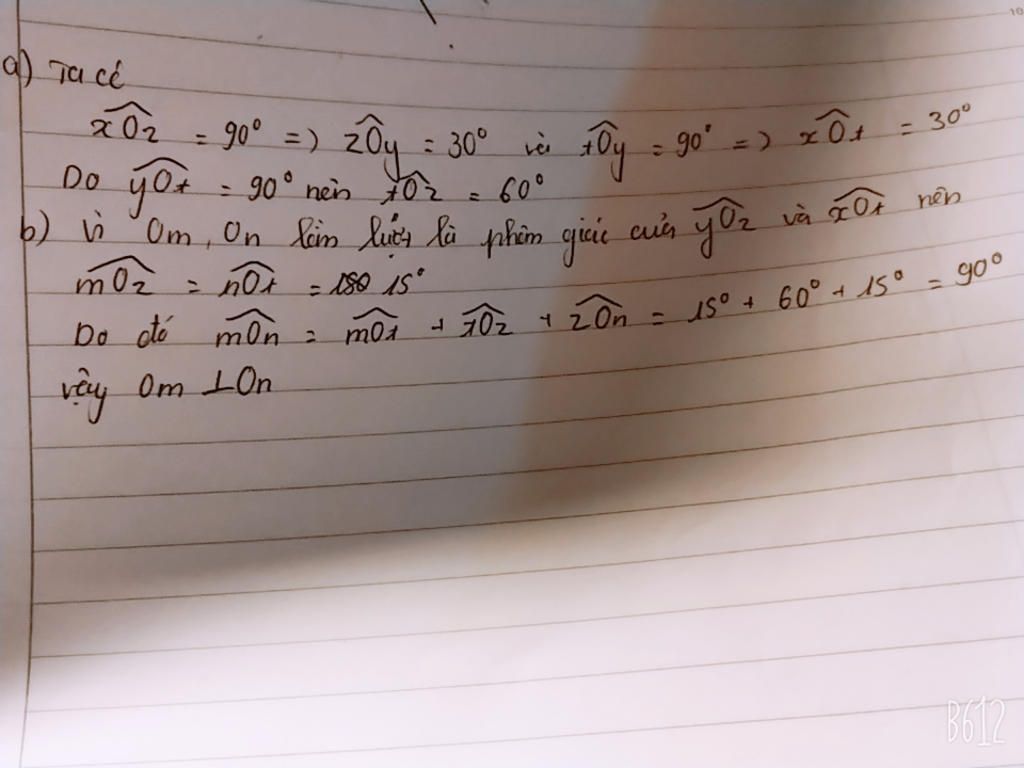 10
a) Ta có
xOz = 90° => zOy = 30° và tOy = 90° => xOt = 30°
Do yOt = 90° nên tOz = 60°
b) Vì Om, On lần lượt là phân giác của yOz và xOt nên
mOz = nOt = 15°
Do đó mOn = mOt + tOz + zOn = 15° + 60° + 15° = 90°
vậy Om ⊥ On
B612